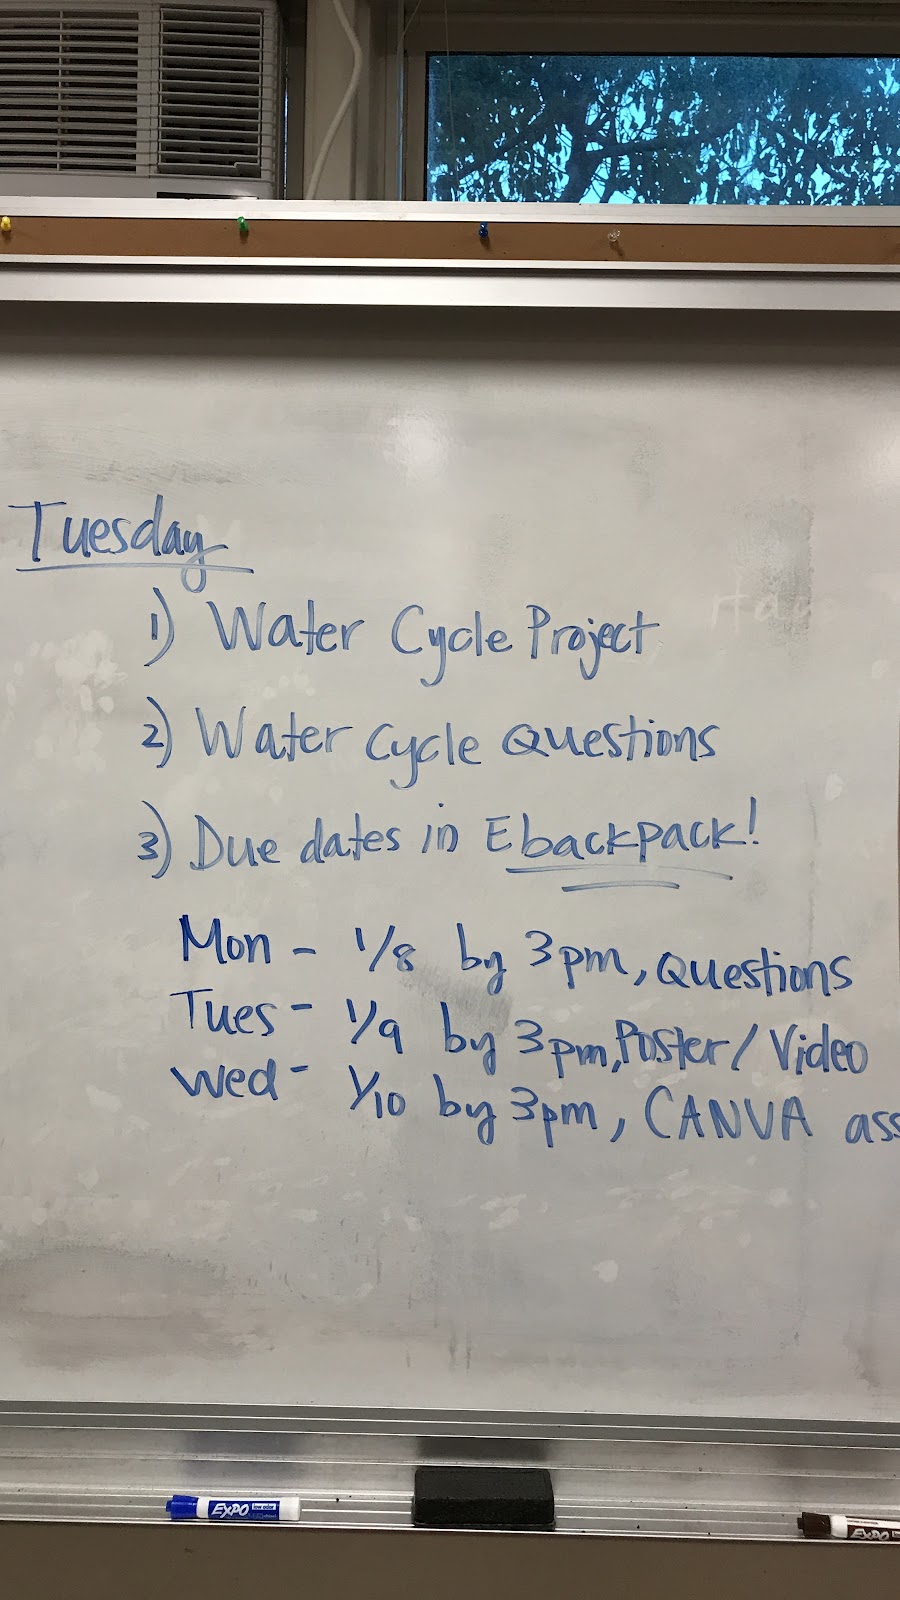 Tuesday
1) Water Cycle Project
2) Water Cycle Questions
3) Due dates in Ebackpack!
Mon - 1/8 by 3pm, Questions
Tues - 1/9 by 3pm, Poster / Video
Wed - 1/10 by 3pm, CANVA ass
EXPO
EXPO